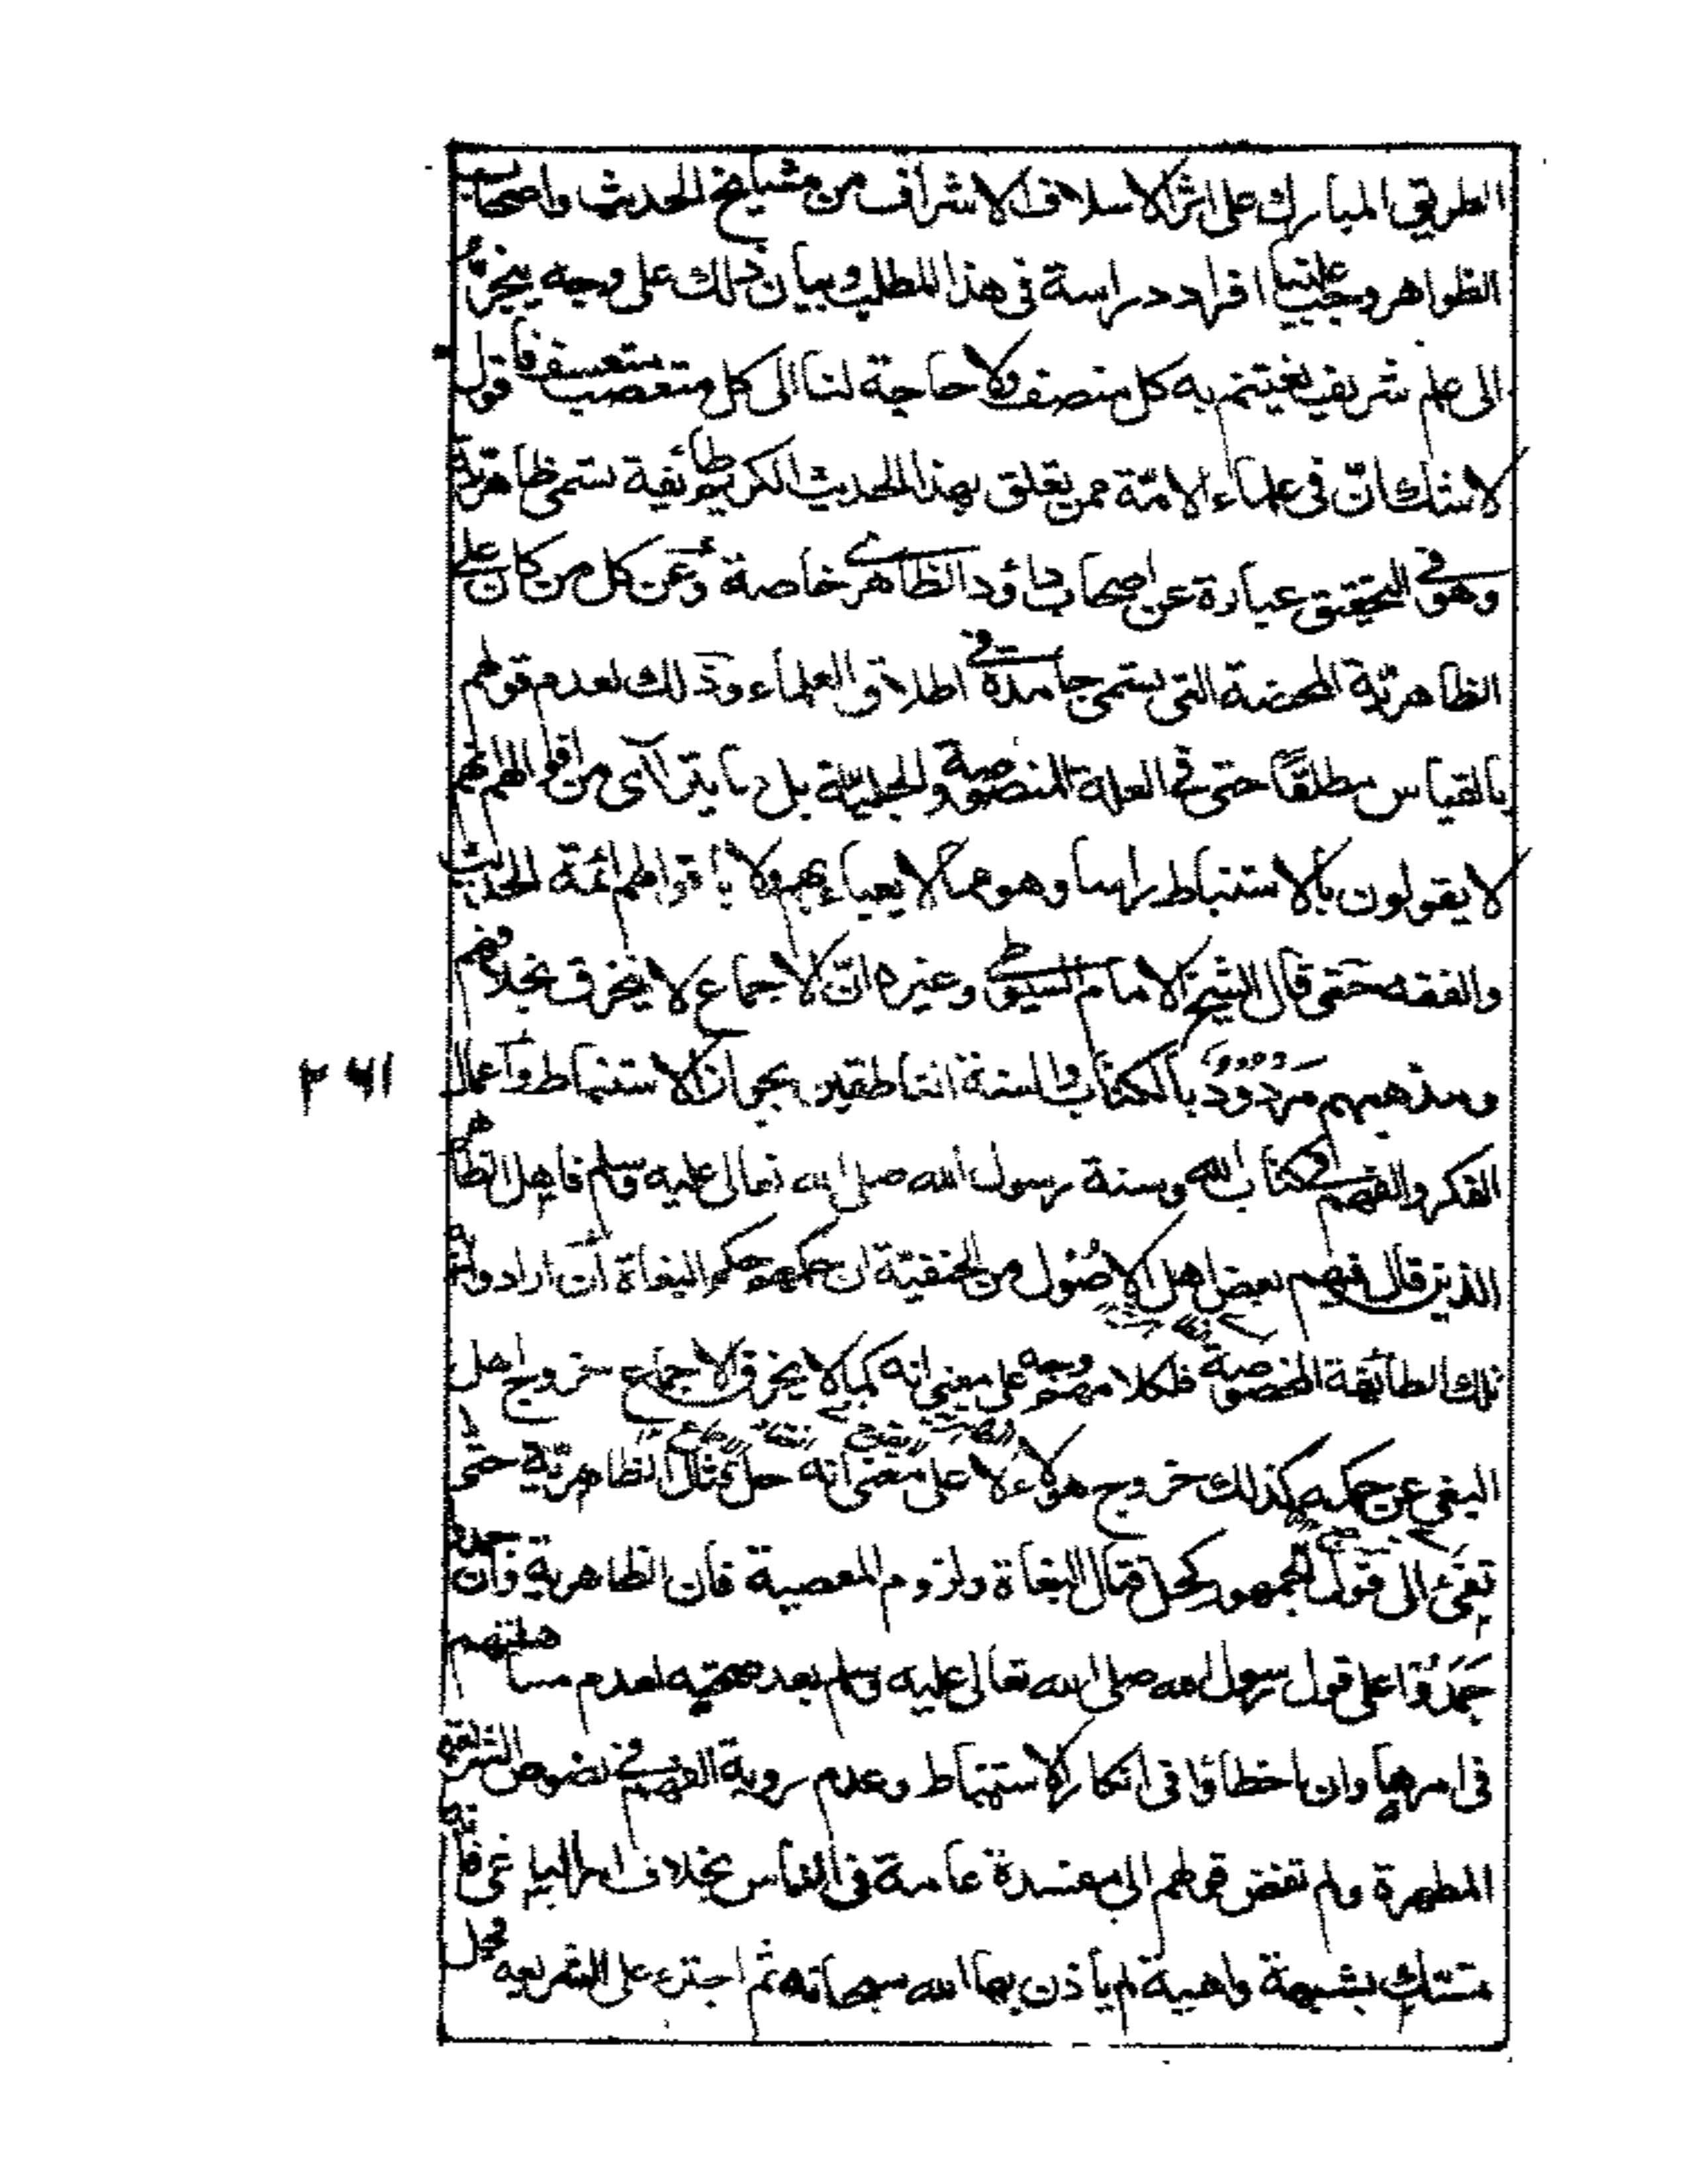 الطريق المبارك على اثر الاسلاف الاشراف من مشايخ الحديث واصحاب
الظواهر وجب علينا افراد دراسة في هذا المطلب وبيان ذلك على وجه ينجرّ
الى علم شريف يغتنم به كل منصف ولا حاجة لنا الى كل متعصب متعسف فاقول
لا شك انّ في علماء الامّة ممن يتعلق بهذا الحديث الكريم طائفة تسمى ظاهريّة
وهو في التحقيق عبارة عن اصحاب داؤد الظاهري خاصة وعن كل من كان على
الظاهريّة المحضة التي يسمى جامدة في اطلاق العلماء وذلك لعدم قولهم
بالقياس مطلقًا حتى في العلة المنصوصة والجليّة بل ما يترآى من اقوالهم انهم
لا يقولون بالاستنباط راسا وهو مما لا يعباء بهم ولا باقوالهم ائمة الحديث
والفقه حتى قال الشيخ الامام السيوطي وغيره انّ الاجماع لا ينخرق بخلافهم
ومذهبهم مردود بالكتاب والسنة الناطقين بجواز الاستنباط واعمال
٢٦١
الفكر والفهم في كتاب الله وسنة رسول الله صلى الله تعالى عليه وسلم فاهل الظاهر
الذين قال فيهم بعض اهل الاصُول من الحنفيّة ان حكمهم حكم البغاة ان ارادوا به
تلك الطائفة المخصوصة فلكلامهم وجه على معنى انه كما لا يخرق الاجماع خروج اهل
البغي عن حكمه كذلك خروج هولاء لا على معنى انه حل قتال الظاهريّة حتى
تفئ الى قول الجمهور كحل قتال البغاة ولزوم المعصية فان الظاهرية وان
جَمَدُوا على قول رسول الله صلى الله تعالى عليه وسلم بعد صحته لعدم مساهلتهم
في امرها وان اخطاؤا في انكار الاستنباط وعدم روية الفهم في نصوص الشريعة
المطهرة ولم تفض قولهم الى مفسدة عامة في الناس بخلاف امر الباغي فانه
متمسك بشبهة واهية لم ياذن بها الله سبحانه ثم اجترء على الشريعه